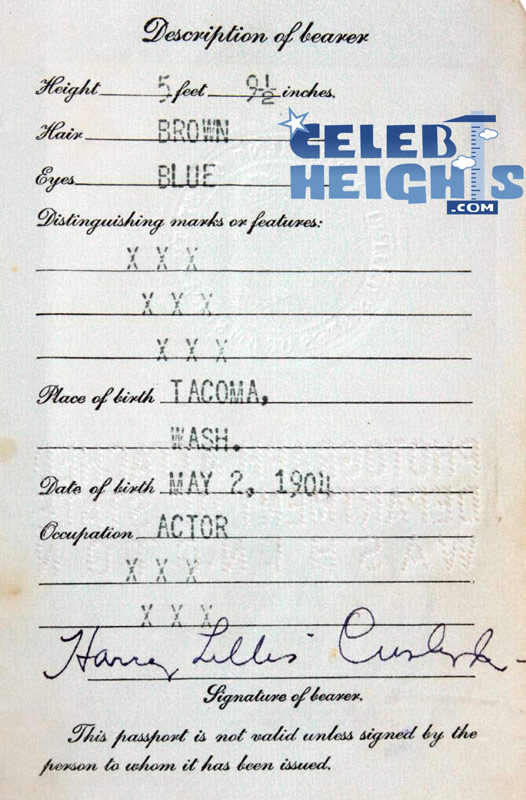 Description of bearer
Height 5 feet 9½ inches.
Hair BROWN
Eyes BLUE
CELEB HEIGHTS .COM
Distinguishing marks or features:
X X X
X X X
X X X
Place of birth TACOMA,
WASH.
Date of birth MAY 2, 1904
Occupation ACTOR
X X X
X X X
Harry Lillis Crosby Jr
Signature of bearer.
This passport is not valid unless signed by the
person to whom it has been issued.